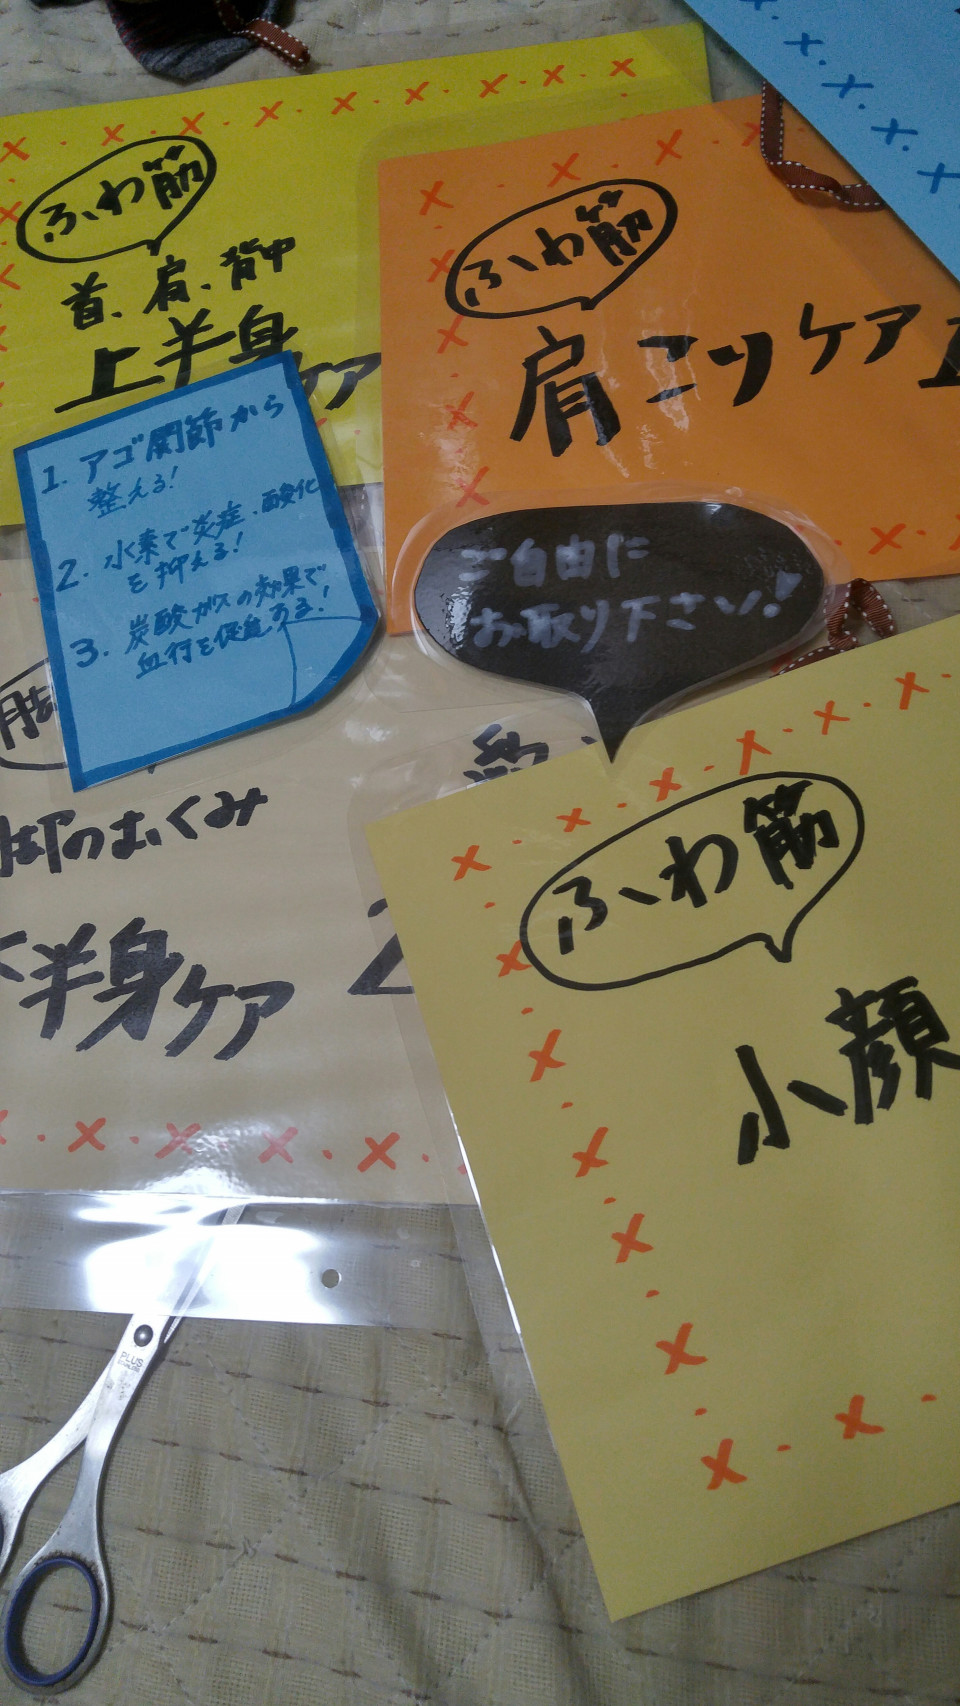 ふわ筋
首、肩、背中
上半身ケア
ふわ筋
肩コリケア
1. アゴ関節から
整える!
2. 水素で炎症、酸化
を抑える!
3. 炭酸ガスの効果で
血行を促進する!
ご自由に
お取り下さい!
脚のむくみ
下半身ケア
ふわ筋
小顔
PLUS